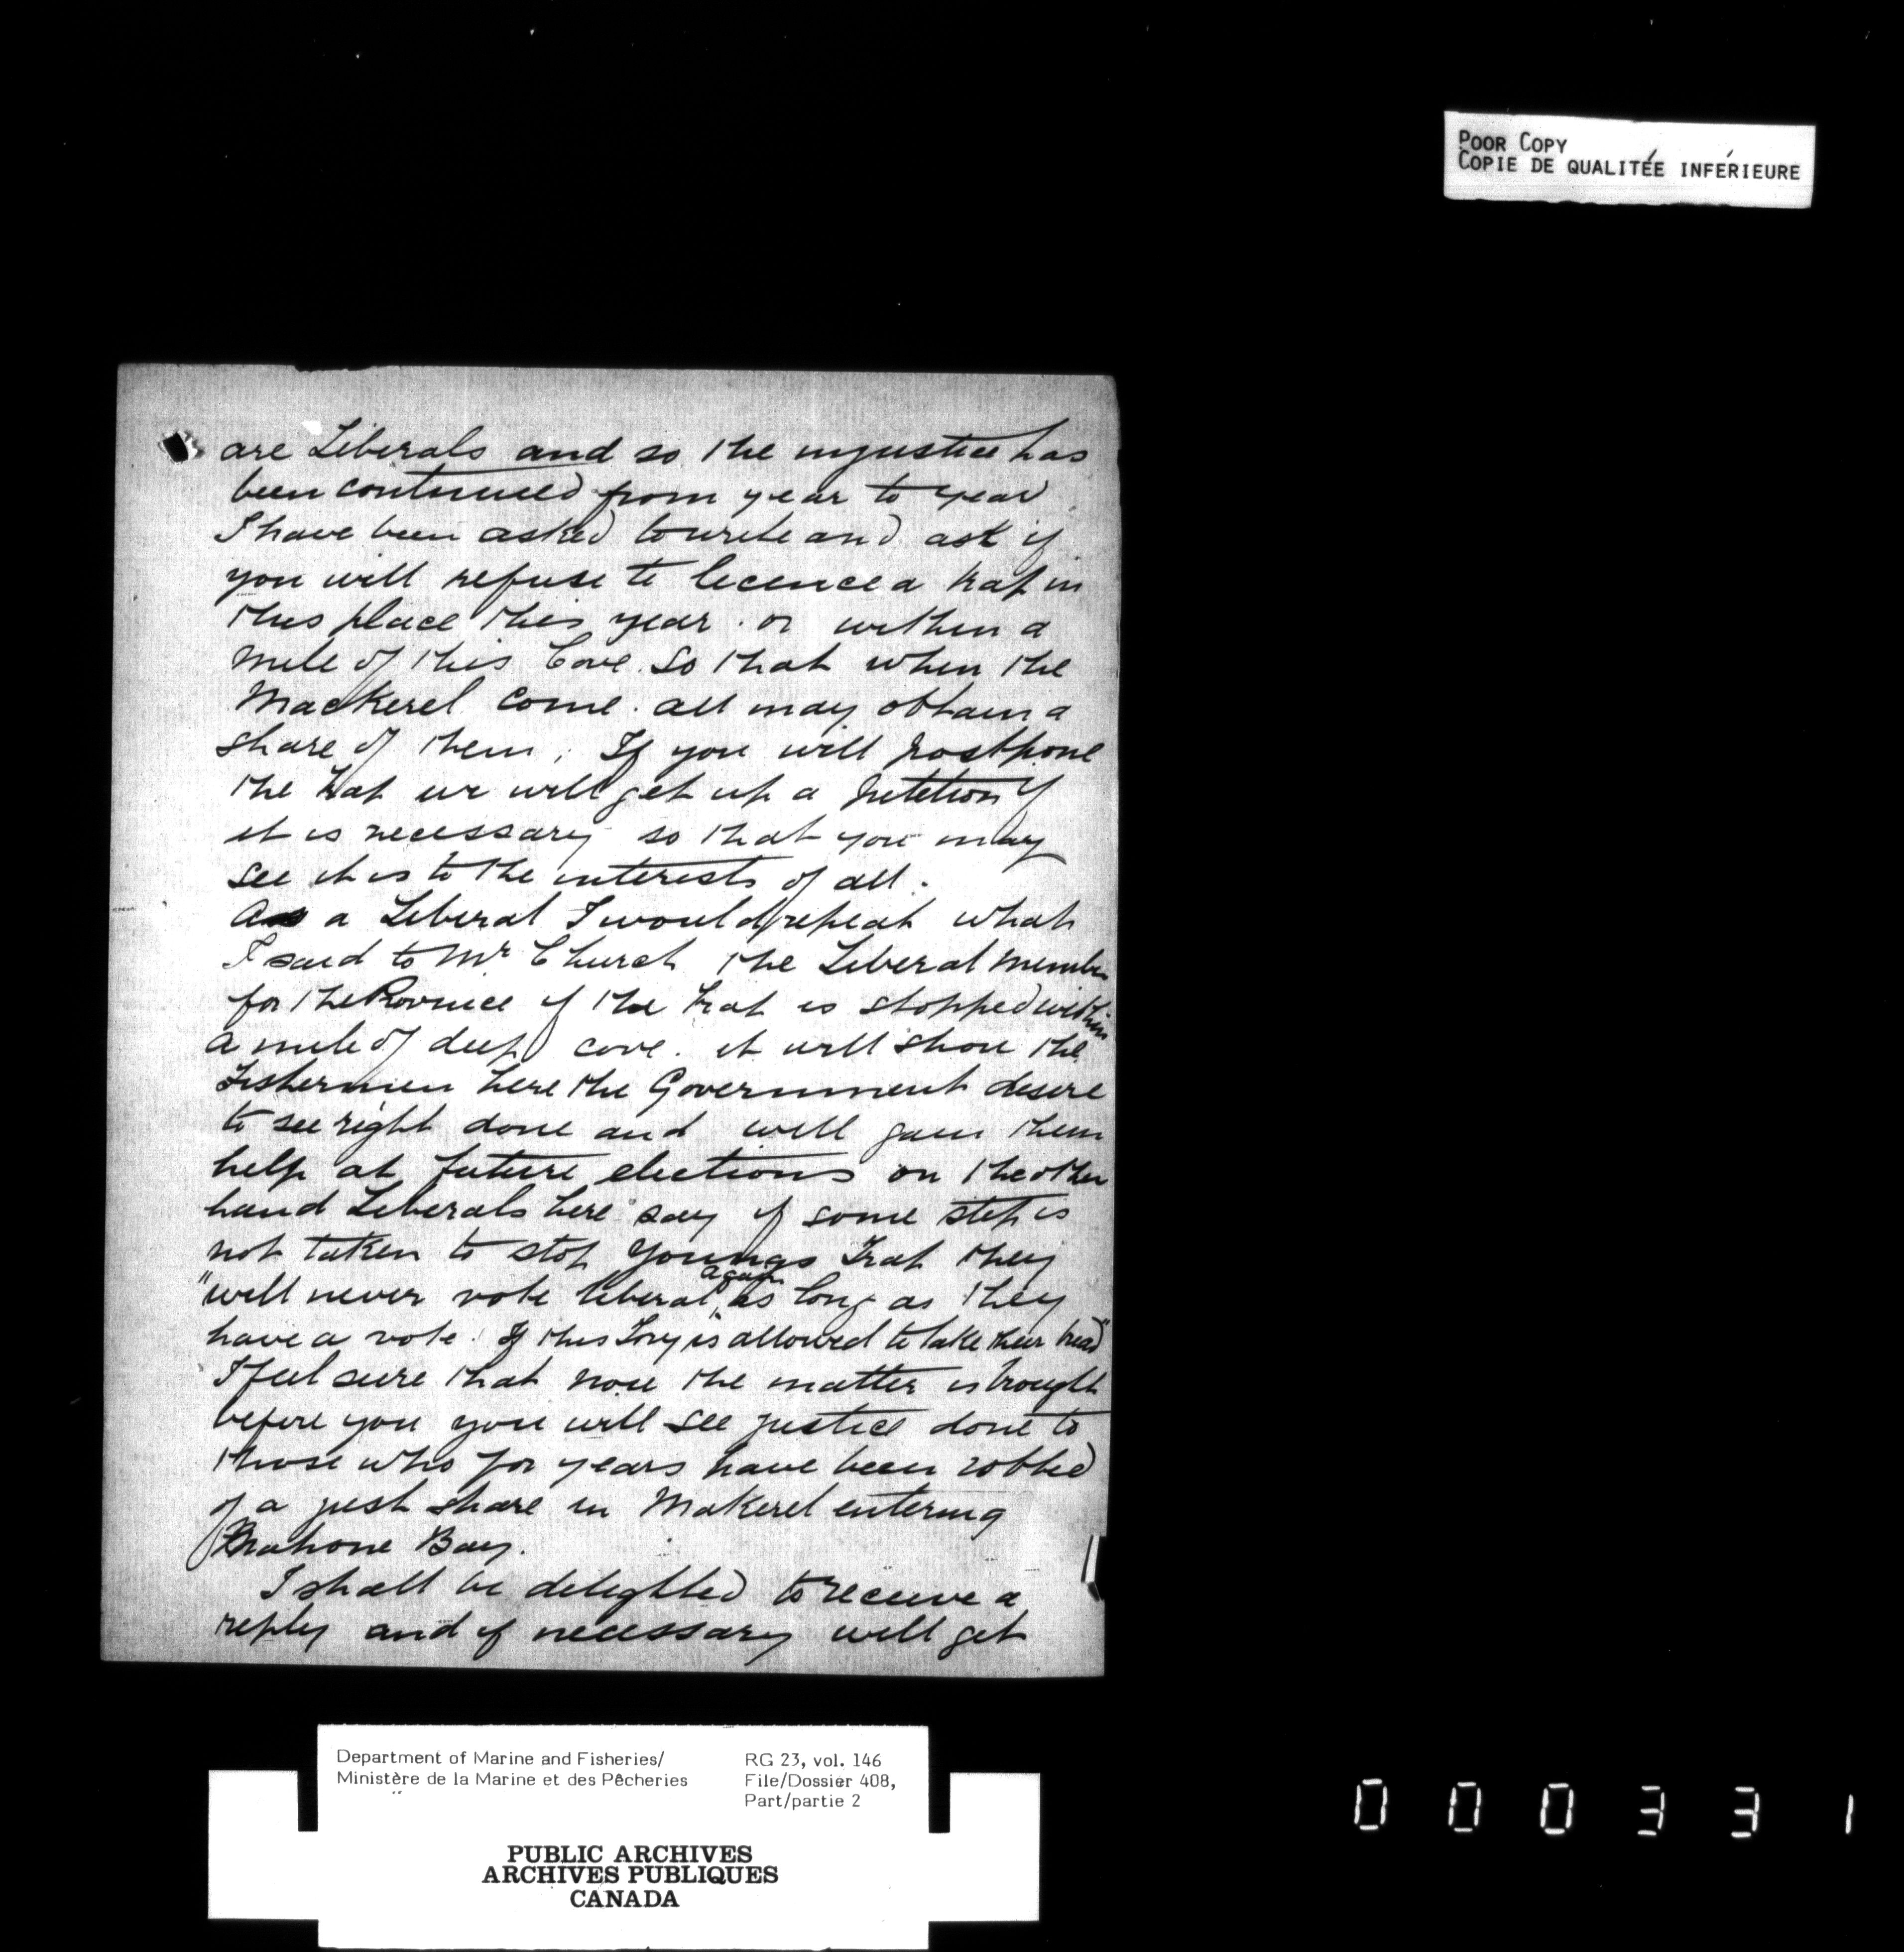 POOR COPY
COPIE DE QUALITÉE INFÉRIEURE
are Liberals and so the injustice has
been continued from year to year
I have been asked to write and ask if
you will refuse to licence a trap in
this place this year. or within a
mile of this Cove. So that when the
Mackerel come. all may obtain a
share of them. If you will postpone
the trap we will get up a petition if
it is necessary so that you may
see it is to the interests of all.
As a Liberal I would repeat what
I said to Mr Church the Liberal member
for the Province if the trap is stopped within
a mile of deep cove. it will show the
Fishermen here the Government desire
to see right done and will gain them
help at future elections on the other
hand Liberals here say if some step is
not taken to stop Youngs Trap they
"will never vote liberal again as long as they
have a vote. If this Tory is allowed to take their bread"
I feel sure that now the matter is brought
before you you will see justice done to
those who for years have been robbed
of a just share in Makerel entering
Mahone Bay.
I shall be delighted to receive a
reply and if necessary will get
Department of Marine and Fisheries/ RG 23, vol. 146
Ministère de la Marine et des Pêcheries File/Dossier 408,
Part/partie 2
PUBLIC ARCHIVES
ARCHIVES PUBLIQUES
CANADA
000331